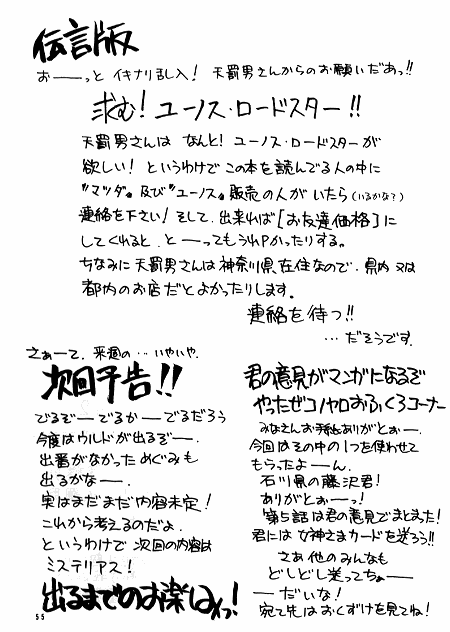 伝言版
おーーっと イキナリ乱入! 天罰男さんからのお願いだあっ!!
求む! ユーノス・ロードスター!!
天罰男さんは なんと! ユーノス・ロードスターが
欲しい! というわけで この本を読んでる人の中に
"マツダ" 及び "ユーノス" 販売の人がいたら (いるかな?)
連絡を下さい! そして、出来れば [お友達価格] に
してくれると、とーーってもうれPかったりする。
ちなみに 天罰男さんは神奈川県在住なので、県内 又は
都内のお店だとよかったりします。
連絡を待つ!!
… だそうです。
さぁーて、来週の … いやいや、
次回予告!!
でるぞー でるかー でるだろう
今度はウルドが出るぞー。
出番がなかった めぐみも
出るかなー。
実はまだまだ内容未定!
これから考えるのだよ。
というわけで 次回の内容は
ミステリアス!
出るまでのお楽しみっ!
君の意見がマンガになるぞ
やったぜコノヤロおふくろコーナー
みなさんお手紙ありがとぉー。
今回はその中の1つを使わせて
もらったよーん。
石川県の藤沢君!
ありがとぉーっ!
第5話は君の意見でまとまった!
君には女神さまカードを送ろう!!
さぁ 他のみんなも
どしどし送ってちょーー
ーだいな!
宛て先はおくずけを見てね!
55